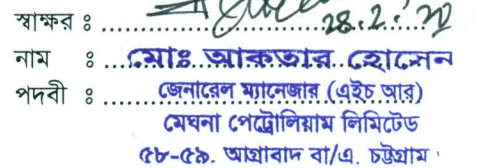 স্বাক্ষর ঃ 28.2.
নাম ঃ মোঃ আকতার হোসেন
পদবী ঃ জেনারেল ম্যানেজার (এইচ আর)
মেঘনা পেট্রোলিয়াম লিমিটেড
৫৮-৫৯, আগ্রাবাদ বা/এ, চট্টগ্রাম